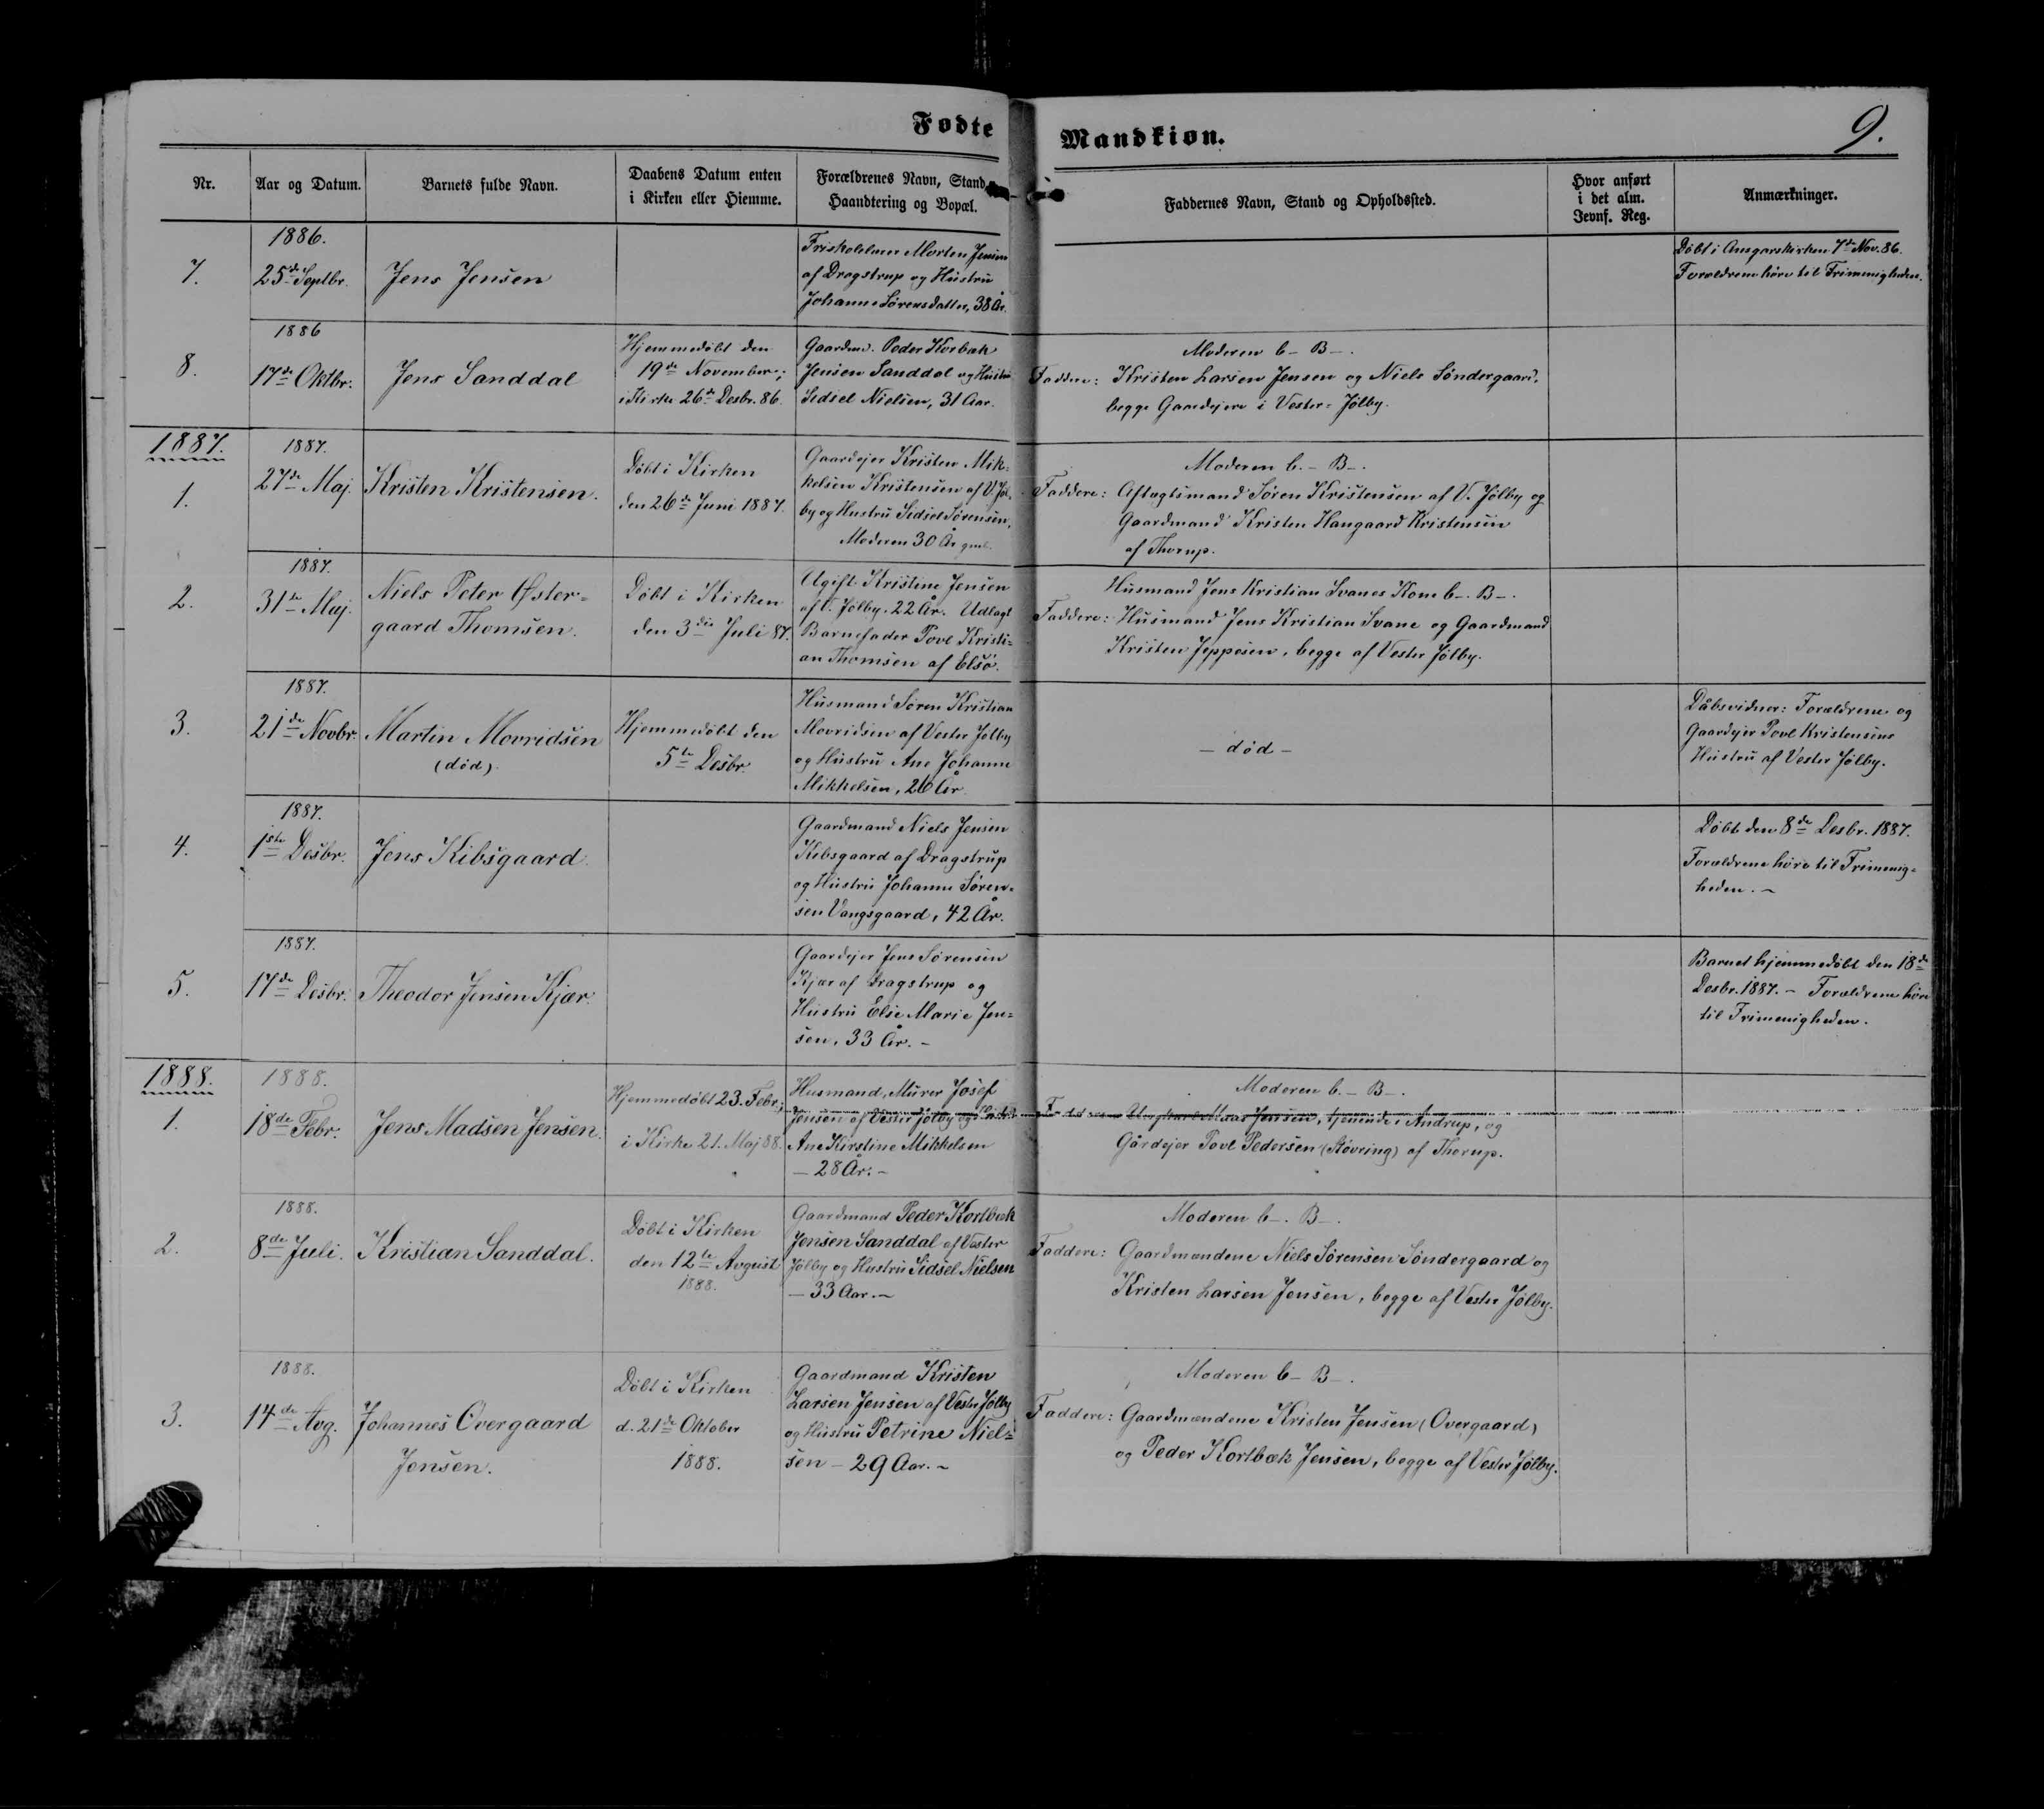 Fødte
Mandkiøn.
9.
Nr.
Aar og Datum.
Barnets fulde Navn.
Daabens Datum enten
i Kirken eller Hiemme.
Forældrenes Navn, Stand
Haandtering og Bopæl.
Faddernes Navn, Stand og Opholdssted.
Hvor anført
i det alm.
Jevnf. Reg.
Anmærkninger.
7.
1886.
25de Septbr.
Jens Jensen
Friskolelærer Morten Jensen
af Dragstrup og Hustru
Johanne Sørensdatter, 38 År.
Døbt i Ansgarskirken 7de Nov. 86.
Forældrene høre til Frimenigheden.
8.
1886
17de Oktbr.
Jens Sanddal
Hjemmedøbt den
19de November;
i Kirke 26de Desbr. 86.
Gaardm. Peder Korbæk
Jensen Sanddal og Hustru
Sidsel Nielsen, 31 Aar.
Moderen b– B–.
Faddere: Kristen Larsen Jensen og Niels Søndergaard,
begge Gaardejere i Vester-Jølby.
1887.
1.
1887.
27de Maj.
Kristen Kristensen.
Døbt i Kirken
den 26de Juni 1887.
Gaardejer Kristen Mik-
kelsen Kristensen af V. Jøl-
by og Hustru Sidsel Sørensen,
Moderen 30 År gml.
Moderen b.– B–.
Faddere: Aftægtsmand Søren Kristensen af V. Jølby og
Gaardmand Kristen Hangaard Kristensen
af Thorup.
2.
1887.
31te Maj.
Niels Peter Øster-
gaard Thomsen.
Døbt i Kirken
den 3die Juli 87.
Ugift Kristine Jensen
af V. Jølby, 22 År. Udlagt
Barnefader Povl Kristi-
an Thomsen af Elsø.
Husmand Jens Kristian Svanes Kone b–. B–.
Faddere: Husmand Jens Kristian Svane og Gaardmand
Kristen Jeppesen, begge af Vester Jølby.
3.
1887.
21de Novbr.
Martin Movridsen
(død)
Hjemmedøbt den
5te Desbr.
Husmand Søren Kristian
Movridsen af Vester Jølby
og Hustru Ane Johanne
Mikkelsen, 26 År.
– død –
Dåbsvidner: Forældrene og
Gaardejer Povl Kristensens
Hustru af Vester Jølby.
4.
1887.
1ste Desbr.
Jens Kibsgaard.
Gaardmand Niels Jensen
Kibsgaard af Dragstrup
og Hustru Johanne Søren-
sen Vangsgaard, 42 År.
Døbt den 8de Desbr. 1887.
Forældrene høre til Frimenig-
heden. –
5.
1887.
17de Desbr.
Theodor Jensen Kjær.
Gaardejer Jens Sørensen
Kjær af Dragstrup og
Hustru Else Marie Jen-
sen, 33 År. –
Barnet hjemmedøbt den 18de
Desbr. 1887. – Forældrene høre
til Frimenigheden.
1888.
1.
1888.
18de Febr.
Jens Madsen Jensen.
Hjemmedøbt 23. Febr.;
i Kirke 21. Maj 88.
Husmand, Murer Josef
Jensen af Vester Jølby og Hustru
Ane Kirstine Mikkelsen
– 28 År. –
Moderen b.– B–.
Jensen, tjenende i Andrup, og
Gårdejer Povl Pedersen (Støvring) af Thorup.
2.
1888.
8de Juli.
Kristian Sanddal.
Døbt i Kirken
den 12te Avgust
1888.
Gaardmand Peder Kortbæk
Jensen Sanddal af Vester
Jølby og Hustru Sidsel Nielsen
– 33 Aar. –
Moderen b–. B–.
Faddere: Gaardmændene Niels Sørensen Søndergaard og
Kristen Larsen Jensen, begge af Vester Jølby.
3.
1888.
14de Avg.
Johannes Overgaard
Jensen.
Døbt i Kirken
d. 21de Oktober
1888.
Gaardmand Kristen
Larsen Jensen af Vester Jølby
og Hustru Petrine Niel-
sen – 29 Aar. –
Moderen b– B–.
Faddere: Gaardmændene Kristen Jensen (Overgaard)
og Peder Kortbæk Jensen, begge af Vester Jølby.